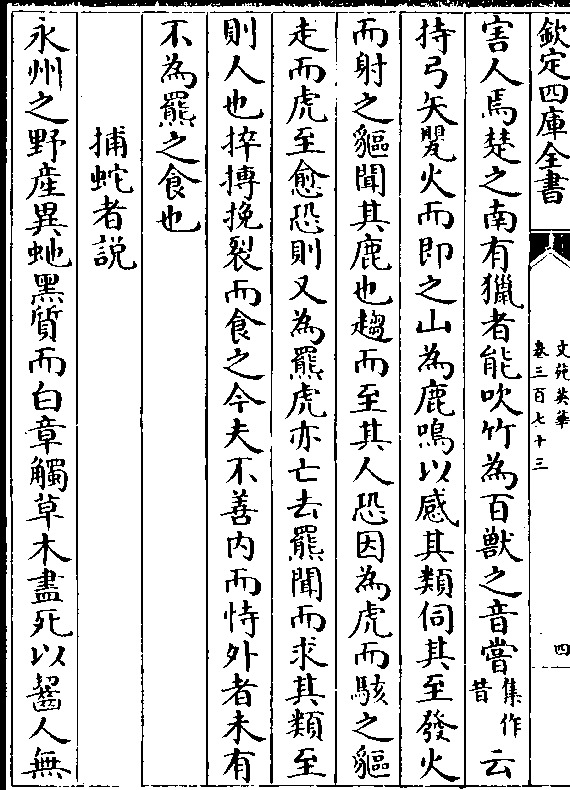 欽定四庫全書
文苑英華
卷三百七十三
四
害人焉楚之南有獵者能吹竹為百獸之音嘗集作昔云
持弓矢甖火而即之山為鹿鳴以感其類伺其至發火
而射之貙聞其鹿也趨而至其人恐因為虎而駭之貙
走而虎至愈恐則又為羆虎亦亡去羆聞而求其類至
則人也捽搏挽裂而食之今夫不善内而恃外者未有
不為羆之食也
捕蛇者説
永州之野産異虵黒質而白章觸草木盡死以齧人無